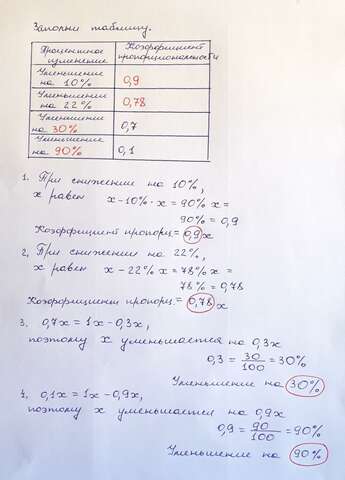 Заполни таблицу.
Процентное изменение
Коэффициент пропорциональности
Уменьшение на 10%
0,9
Уменьшение на 22%
0,78
Уменьшение на 30%
0,7
Уменьшение на 90%
0,1
1. При снижении на 10%,
x равен x-10%·x=90%x=
90%=0,9
Коэффициент пропорц.=0,9x
2. При снижении на 22%,
x равен x-22%x=78%x=
78%=0,78
Коэффициент пропорц.=0,78x
3. 0,7x=1x-0,3x,
поэтому x уменьшается на 0,3x
0,3=30/100=30%
Уменьшение на 30%
4. 0,1x=1x-0,9x,
поэтому x уменьшается на 0,9x
0,9=90/100=90%
Уменьшение на 90%